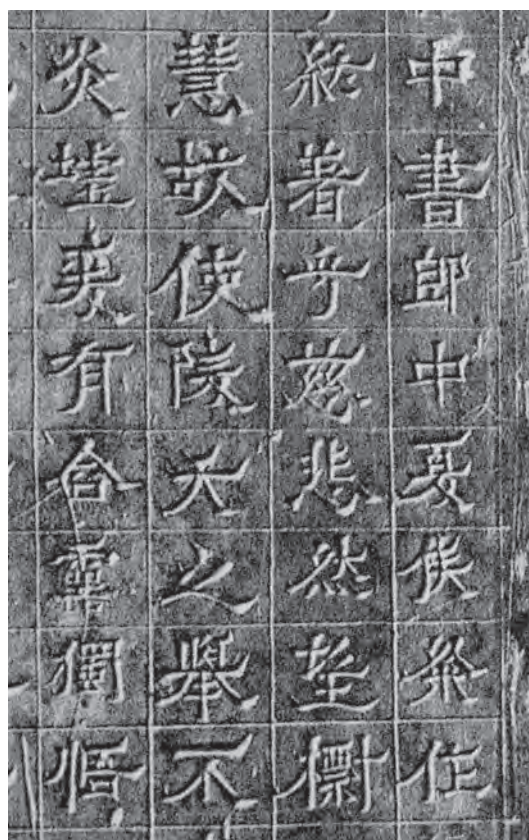 中書郎中夏侯粲作
終著乎慈悲然望標
慧故使陵天之舉不
炎爰有含靈獨悟